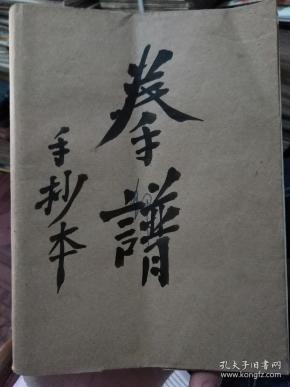 拳譜
手抄本
孔夫子旧书网